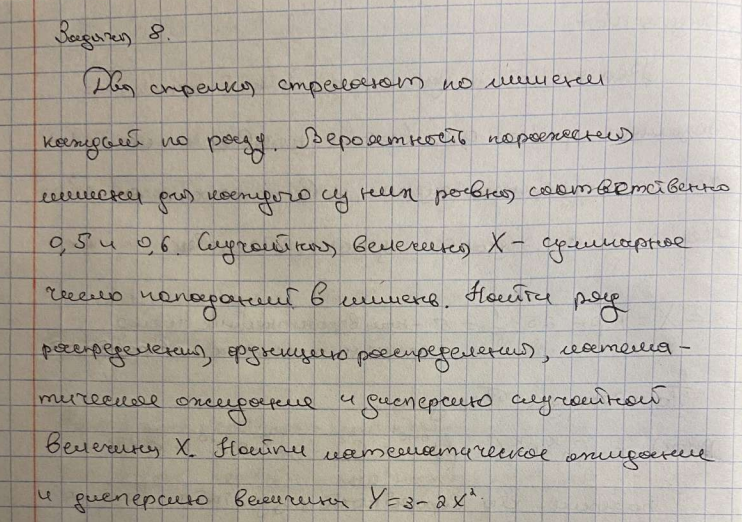 Задача 8.
Два стрелка стреляют по мишени
каждый по разу. Вероятность поражения
мишени для каждого из них равна соответственно
0,5 и 0,6. Случайная величина X - суммарное
число попаданий в мишень. Найти ряд
распределения, функцию распределения, матема-
тическое ожидание и дисперсию случайной
величины X. Найти математическое ожидание
и дисперсию величины Y = 3 - 2X².